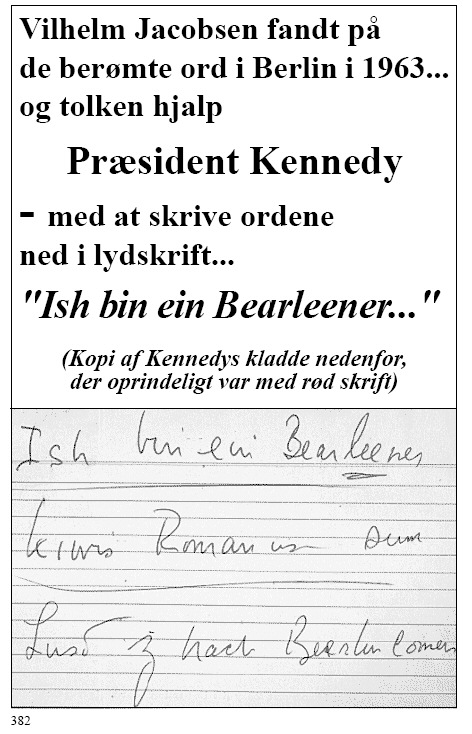 Vilhelm Jacobsen fandt på
de berømte ord i Berlin i 1963...
og tolken hjalp
Præsident Kennedy
- med at skrive ordene
ned i lydskrift...
"Ish bin ein Bearleener..."
(Kopi af Kennedys kladde nedenfor,
der oprindeligt var med rød skrift)
Ish bin ein Bearleener
kiwis Romanus sum
Lusd z nach Bearlin comen
382